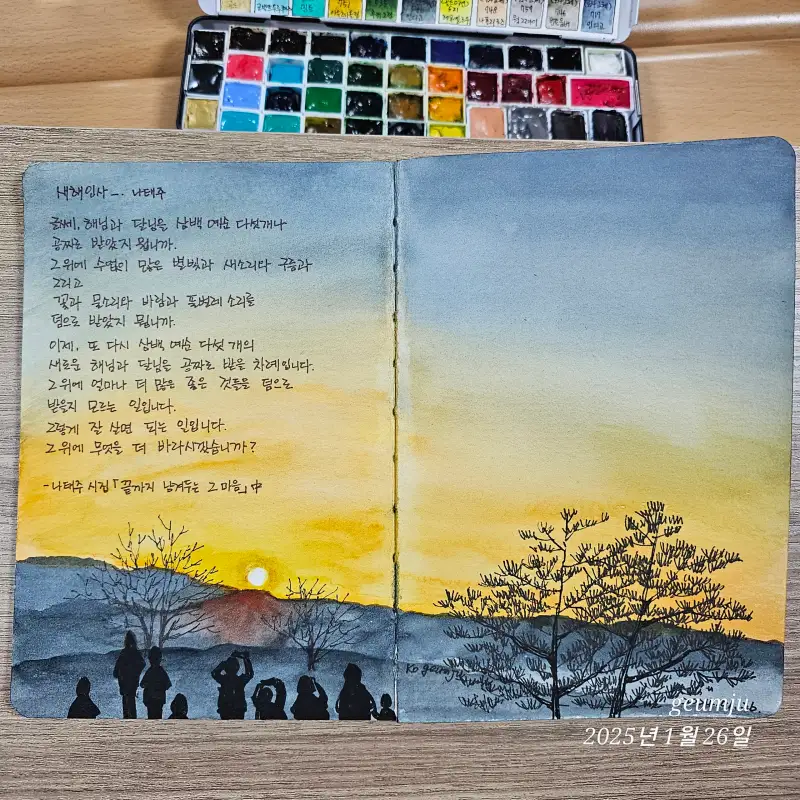 새해인사 - 나태주
글쎄, 해님과 달님을 삼백 예순 다섯개나
공짜로 받았지 뭡니까.
그 위에 수없이 많은 별빛과 새소리와 구름과
그리고
꽃과 물소리와 바람과 풀벌레 소리를
덤으로 받았지 뭡니까.
이제, 또 다시 삼백 예순 다섯 개의
새로운 해님과 달님을 공짜로 받을 차례입니다.
그 위에 얼마나 더 많은 좋은 것들을 덤으로
받을지 모르는 일입니다.
그렇게 잘 살면 되는 일입니다.
그 위에 무엇을 더 바라시겠습니까?
-나태주 시집「끝까지 남겨두는 그 마음」中
geumju
2025년 1월 26일